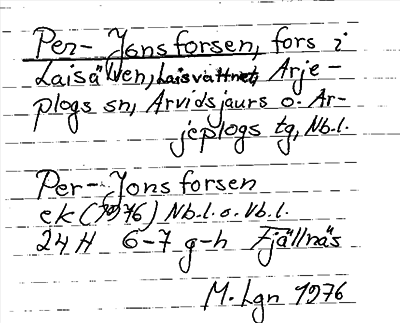 Per-Jonsforsen, fors i
Laisälven, Laisvattnet, Arje-
plogs sn, Arvidsjaurs o. Ar-
jeplogs tg, Nb.l.
Per-Jonsforsen
ek (1976) Nb.l. o. Vb.l.
24H 6-7 g-h Fjällnäs
M. Lgn 1976